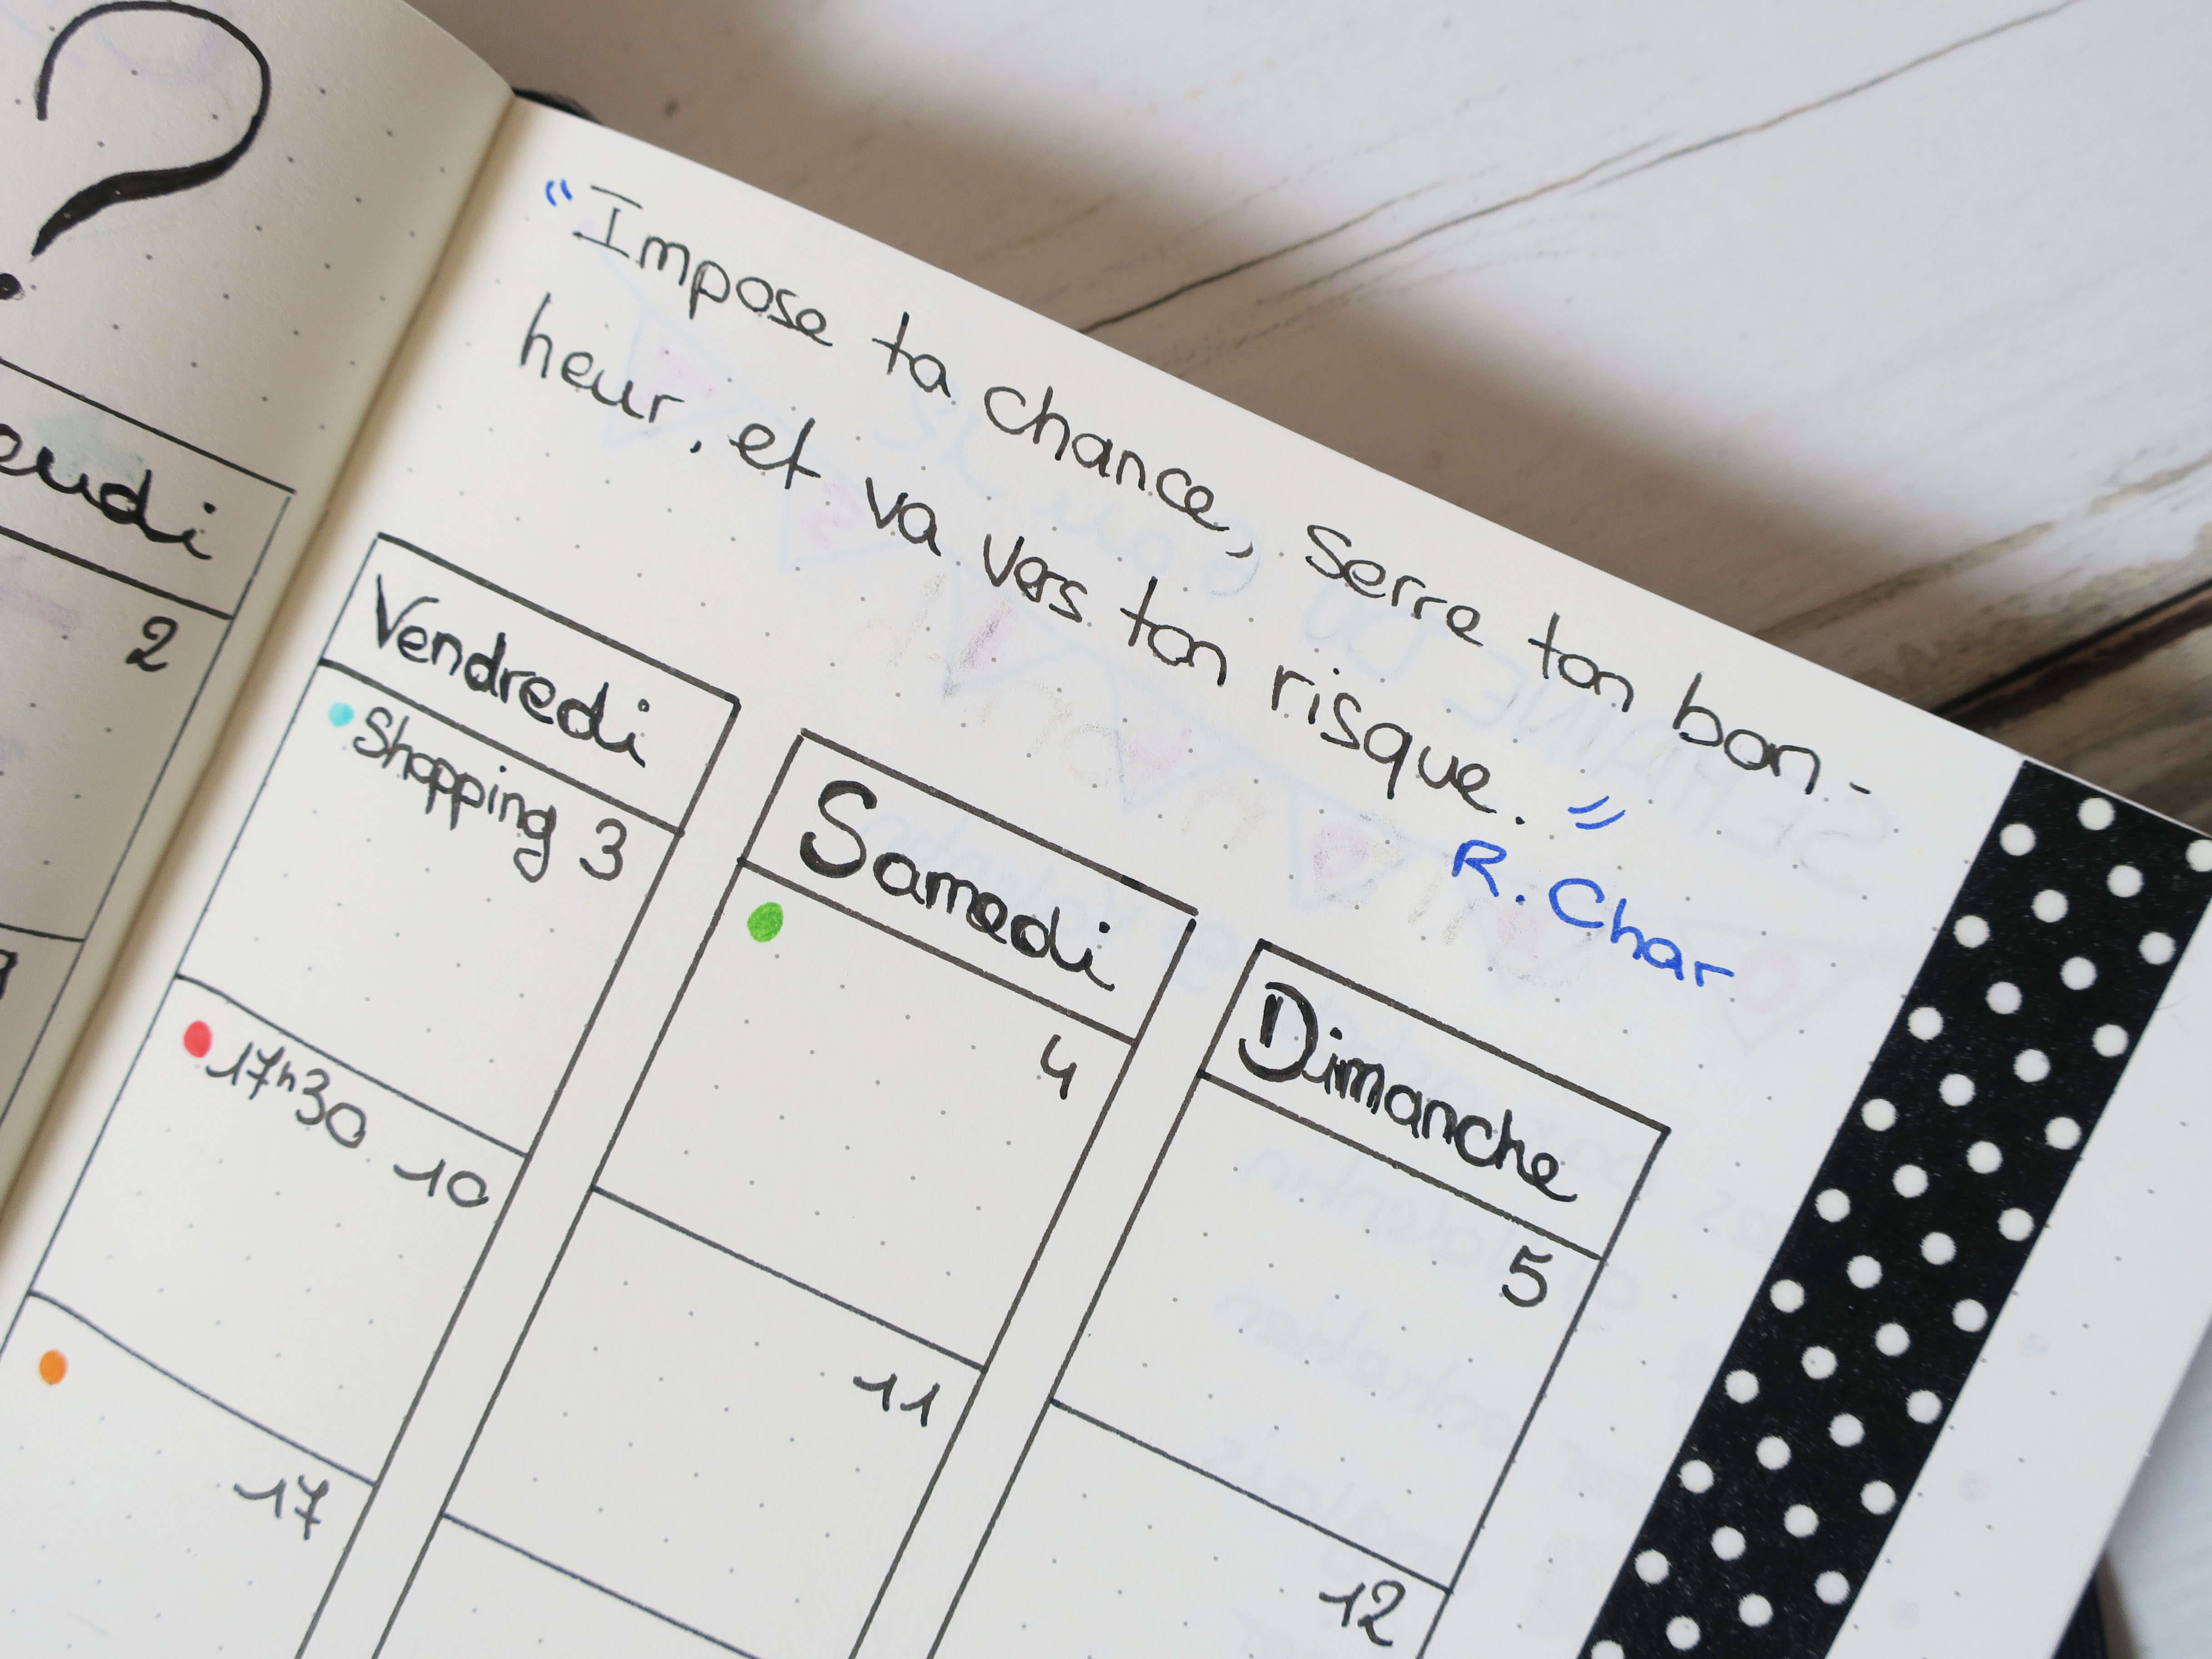 ?
“Impose ta chance, serre ton bon-
heur, et va vers ton risque.”
R. Char
eudi
2
Vendredi
Shopping 3
17h30 10
17
Samedi
4
11
Dimanche
5
12